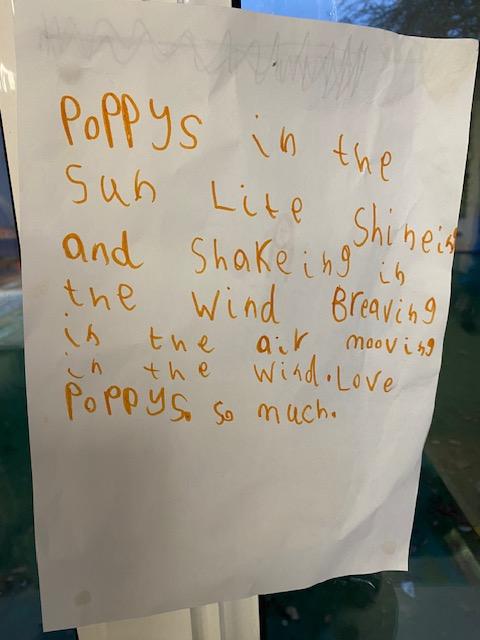 Poppys in the
Sun Lite Shineing
and Shakeing in
the wind Breaving
in the air mooving
in the wind. Love
Poppys. so much.